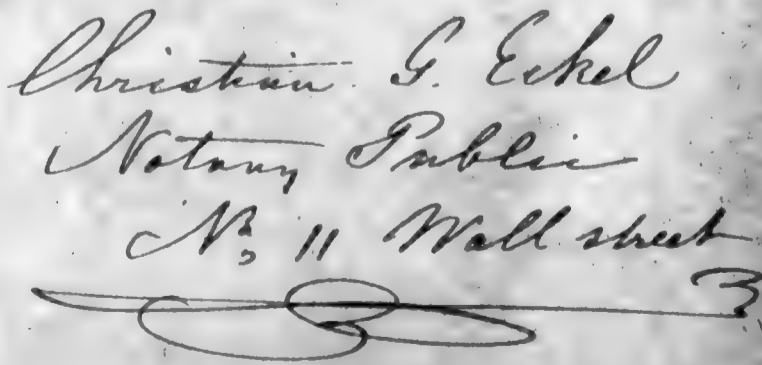 Christian G. Eckel
Notary Public
No 11 Wall street